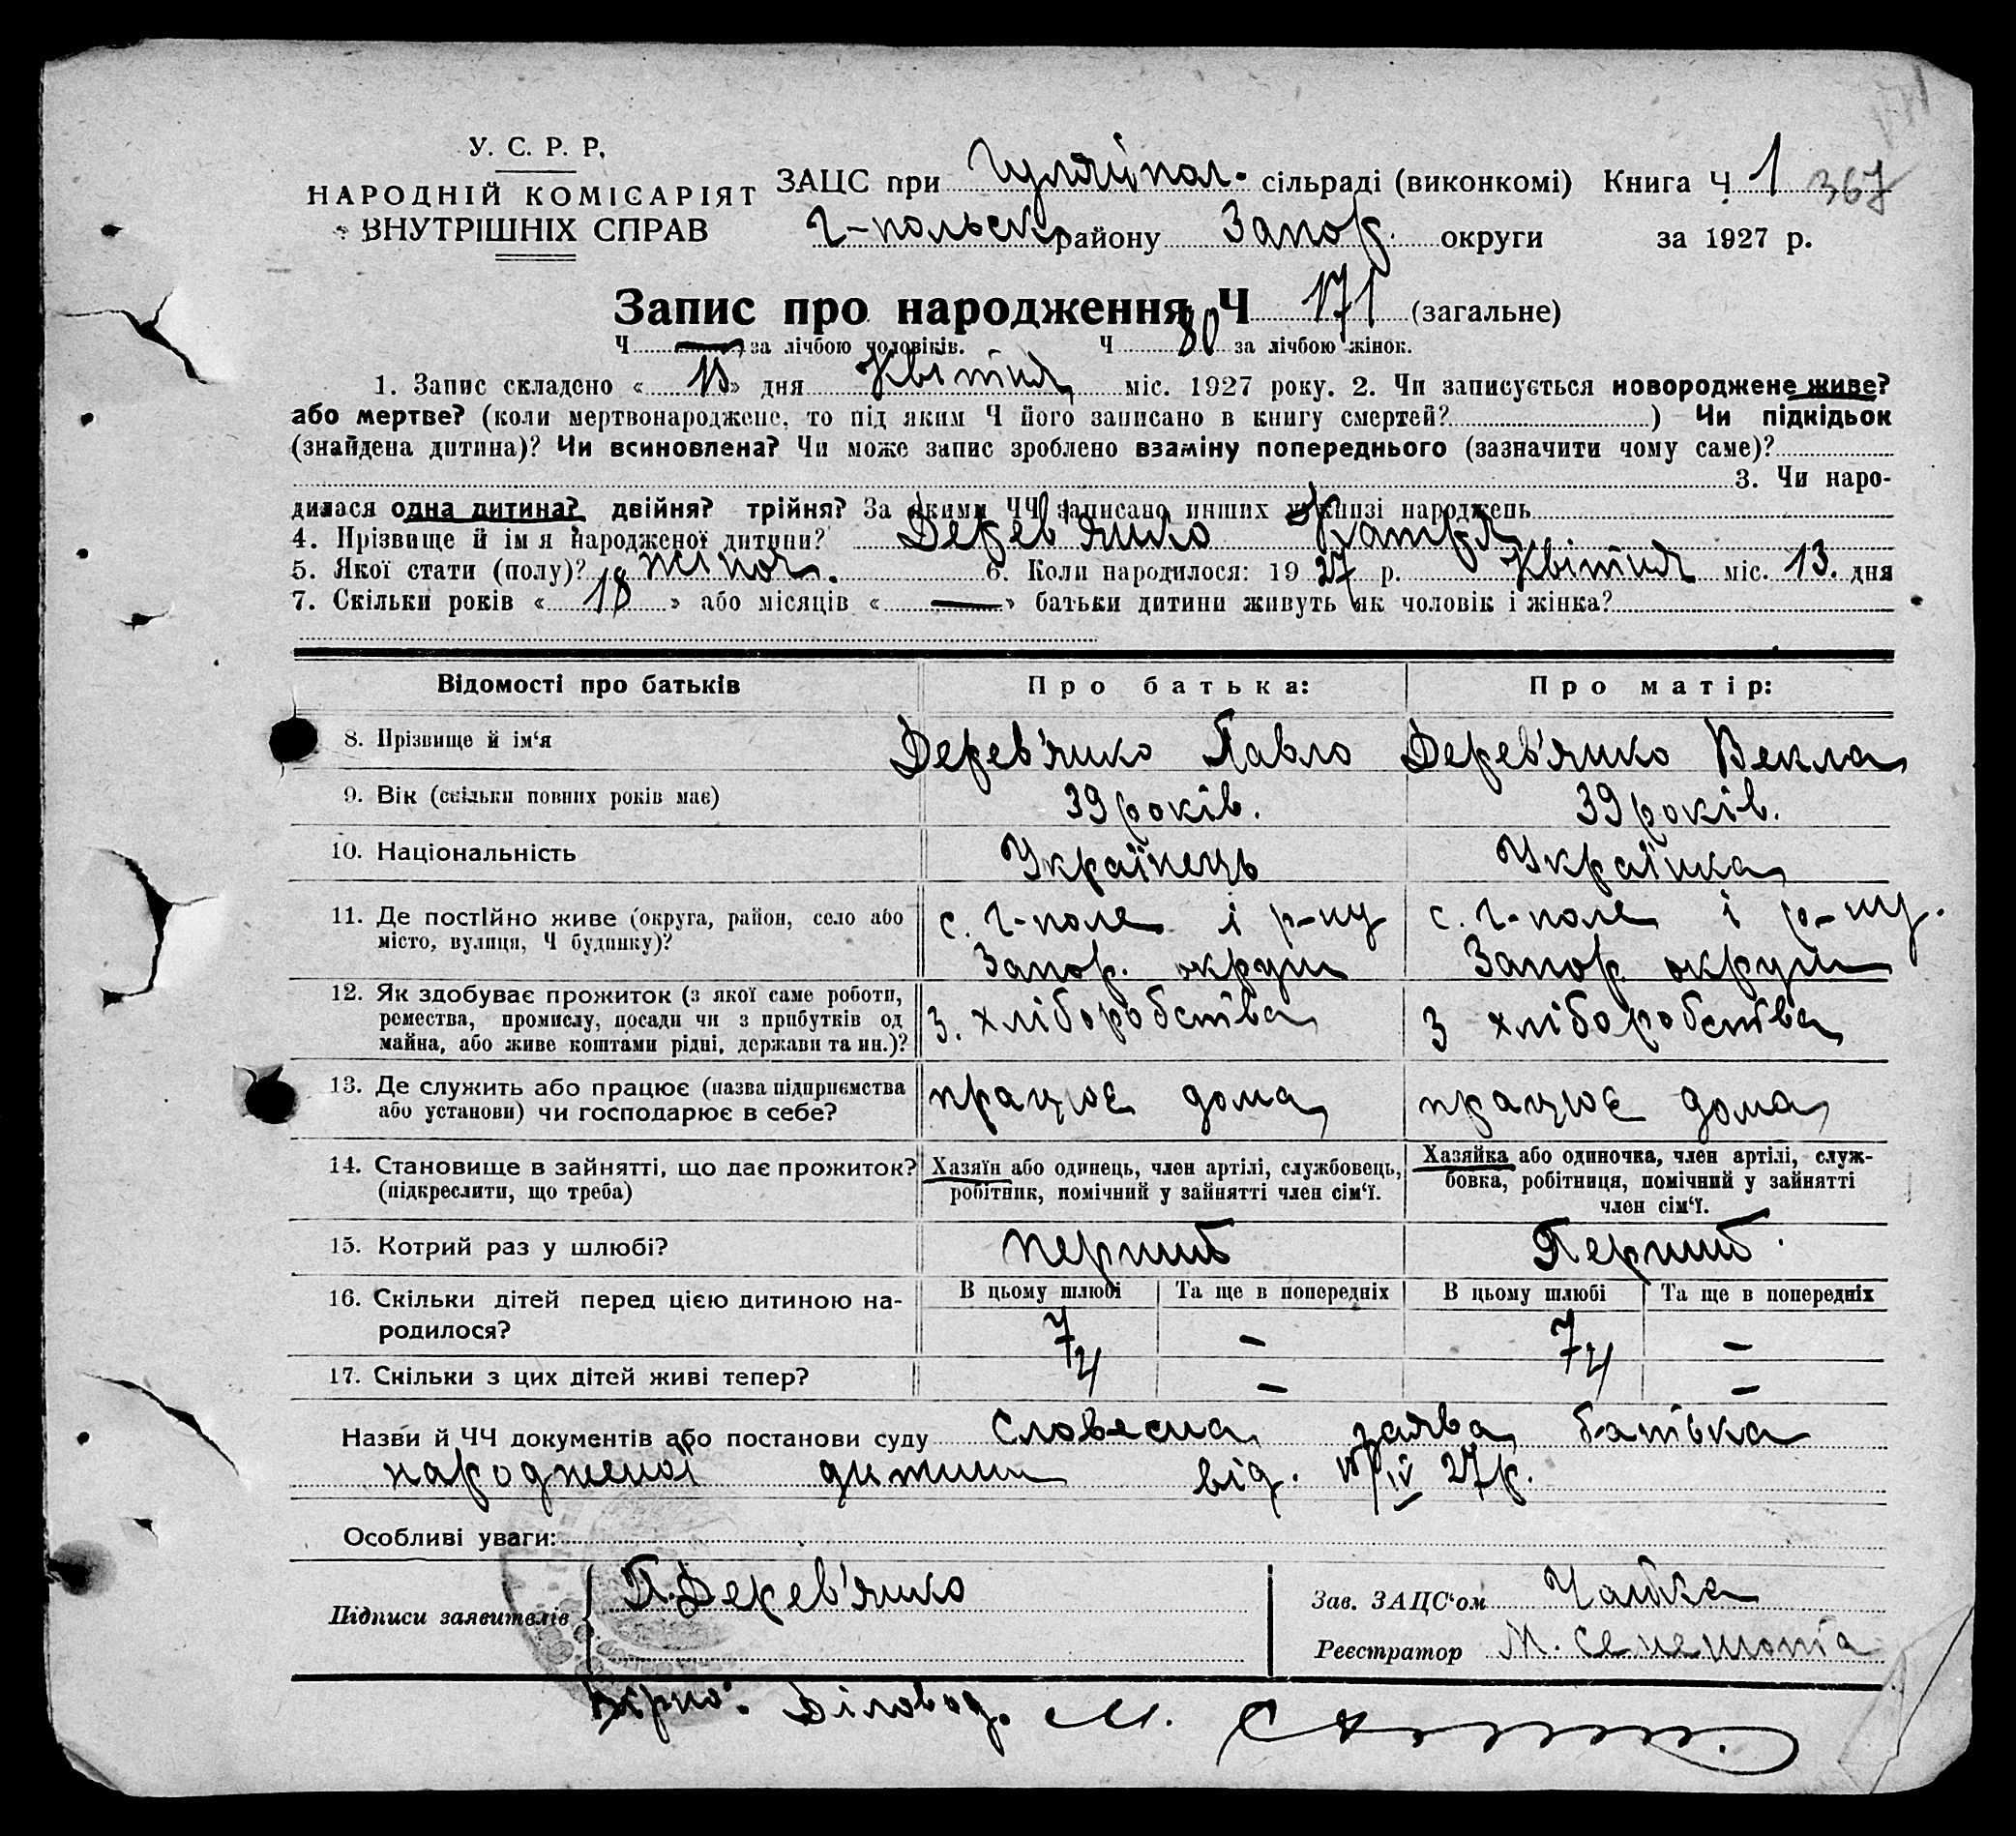 У. С. Р. Р.
НАРОДНІЙ КОМІСАРІЯТ
ВНУТРІШНІХ СПРАВ
ЗАЦС при Гуляйпол. сільраді (виконкомі) Книга Ч. 1 367
Г-польськ району Запор. округи за 1927 р.
Запис про народження Ч 171 (загальне)
Ч — за лічбою чоловіків. Ч 80 за лічбою жінок.
1. Запис складено « » дня Квітня міс. 1927 року. 2. Чи записується новороджене живе?
або мертве? (коли мертвонароджене, то під яким Ч його записано в книгу смертей? ) Чи підкідьок
(знайдена дитина)? Чи всиновлена? Чи може запис зроблено взаміну попереднього (зазначити чому саме)?
3. Чи наро-
дилася одна дитина? двійня? трійня? За якими ЧЧ записано инших у книзі народжень
4. Прізвище й ім я народженої дитини? Дерев'янко Катря
5. Якої стати (полу)? жіноч. 6. Коли народилося: 1927 р. Квітня міс. 13. дня
7. Скільки років « 18 » або місяців « — » батьки дитини живуть як чоловік і жінка?
Відомості про батьків Про батька: Про матір:
8. Прізвище й ім'я Дерев'янко Павло Дерев'янко Векла
9. Вік (скільки повних років має) 39 років. 39 років.
10. Національність Українець Українка
11. Де постійно живе (округа, район, село або с. Г-поле і р-ну с. Г-поле і р-ну.
місто, вулиця, Ч будинку)? Запор. округи Запор округи
12. Як здобуває прожиток (з якої саме роботи,
ремества, промислу, посади чи з прибутків од з. хліборобства з хліборобства
майна, або живе коштами рідні, держави та ин.)?
13. Де служить або працює (назва підприємства працює дома працює дома
або установи) чи господарює в себе?
14. Становище в зайнятті, що дає прожиток? Хазяїн або одинець, член артілі, службовець, Хазяйка або одиночка, член артілі, служ-
(підкреслити, що треба) робітник, помічний у зайнятті член сім'ї. бовка, робітниця, помічний у зайнятті
член сім'ї.
15. Котрий раз у шлюбі? перший Перший.
16. Скільки дітей перед цією дитиною на- В цьому шлюбі Та ще в попередніх В цьому шлюбі Та ще в попередніх
родилося? 7 — 7 —
17. Скільки з цих дітей живі тепер? 4 — 4 —
Назви й ЧЧ документів або постанови суду Словесна заява батька
народженої дитини від. IV 27р.
Особливі уваги:
Підписи заявителів П. Дерев'янко Зав. ЗАЦС'ом Чайка
Реєстратор М.
Вірно: Діловод. М.